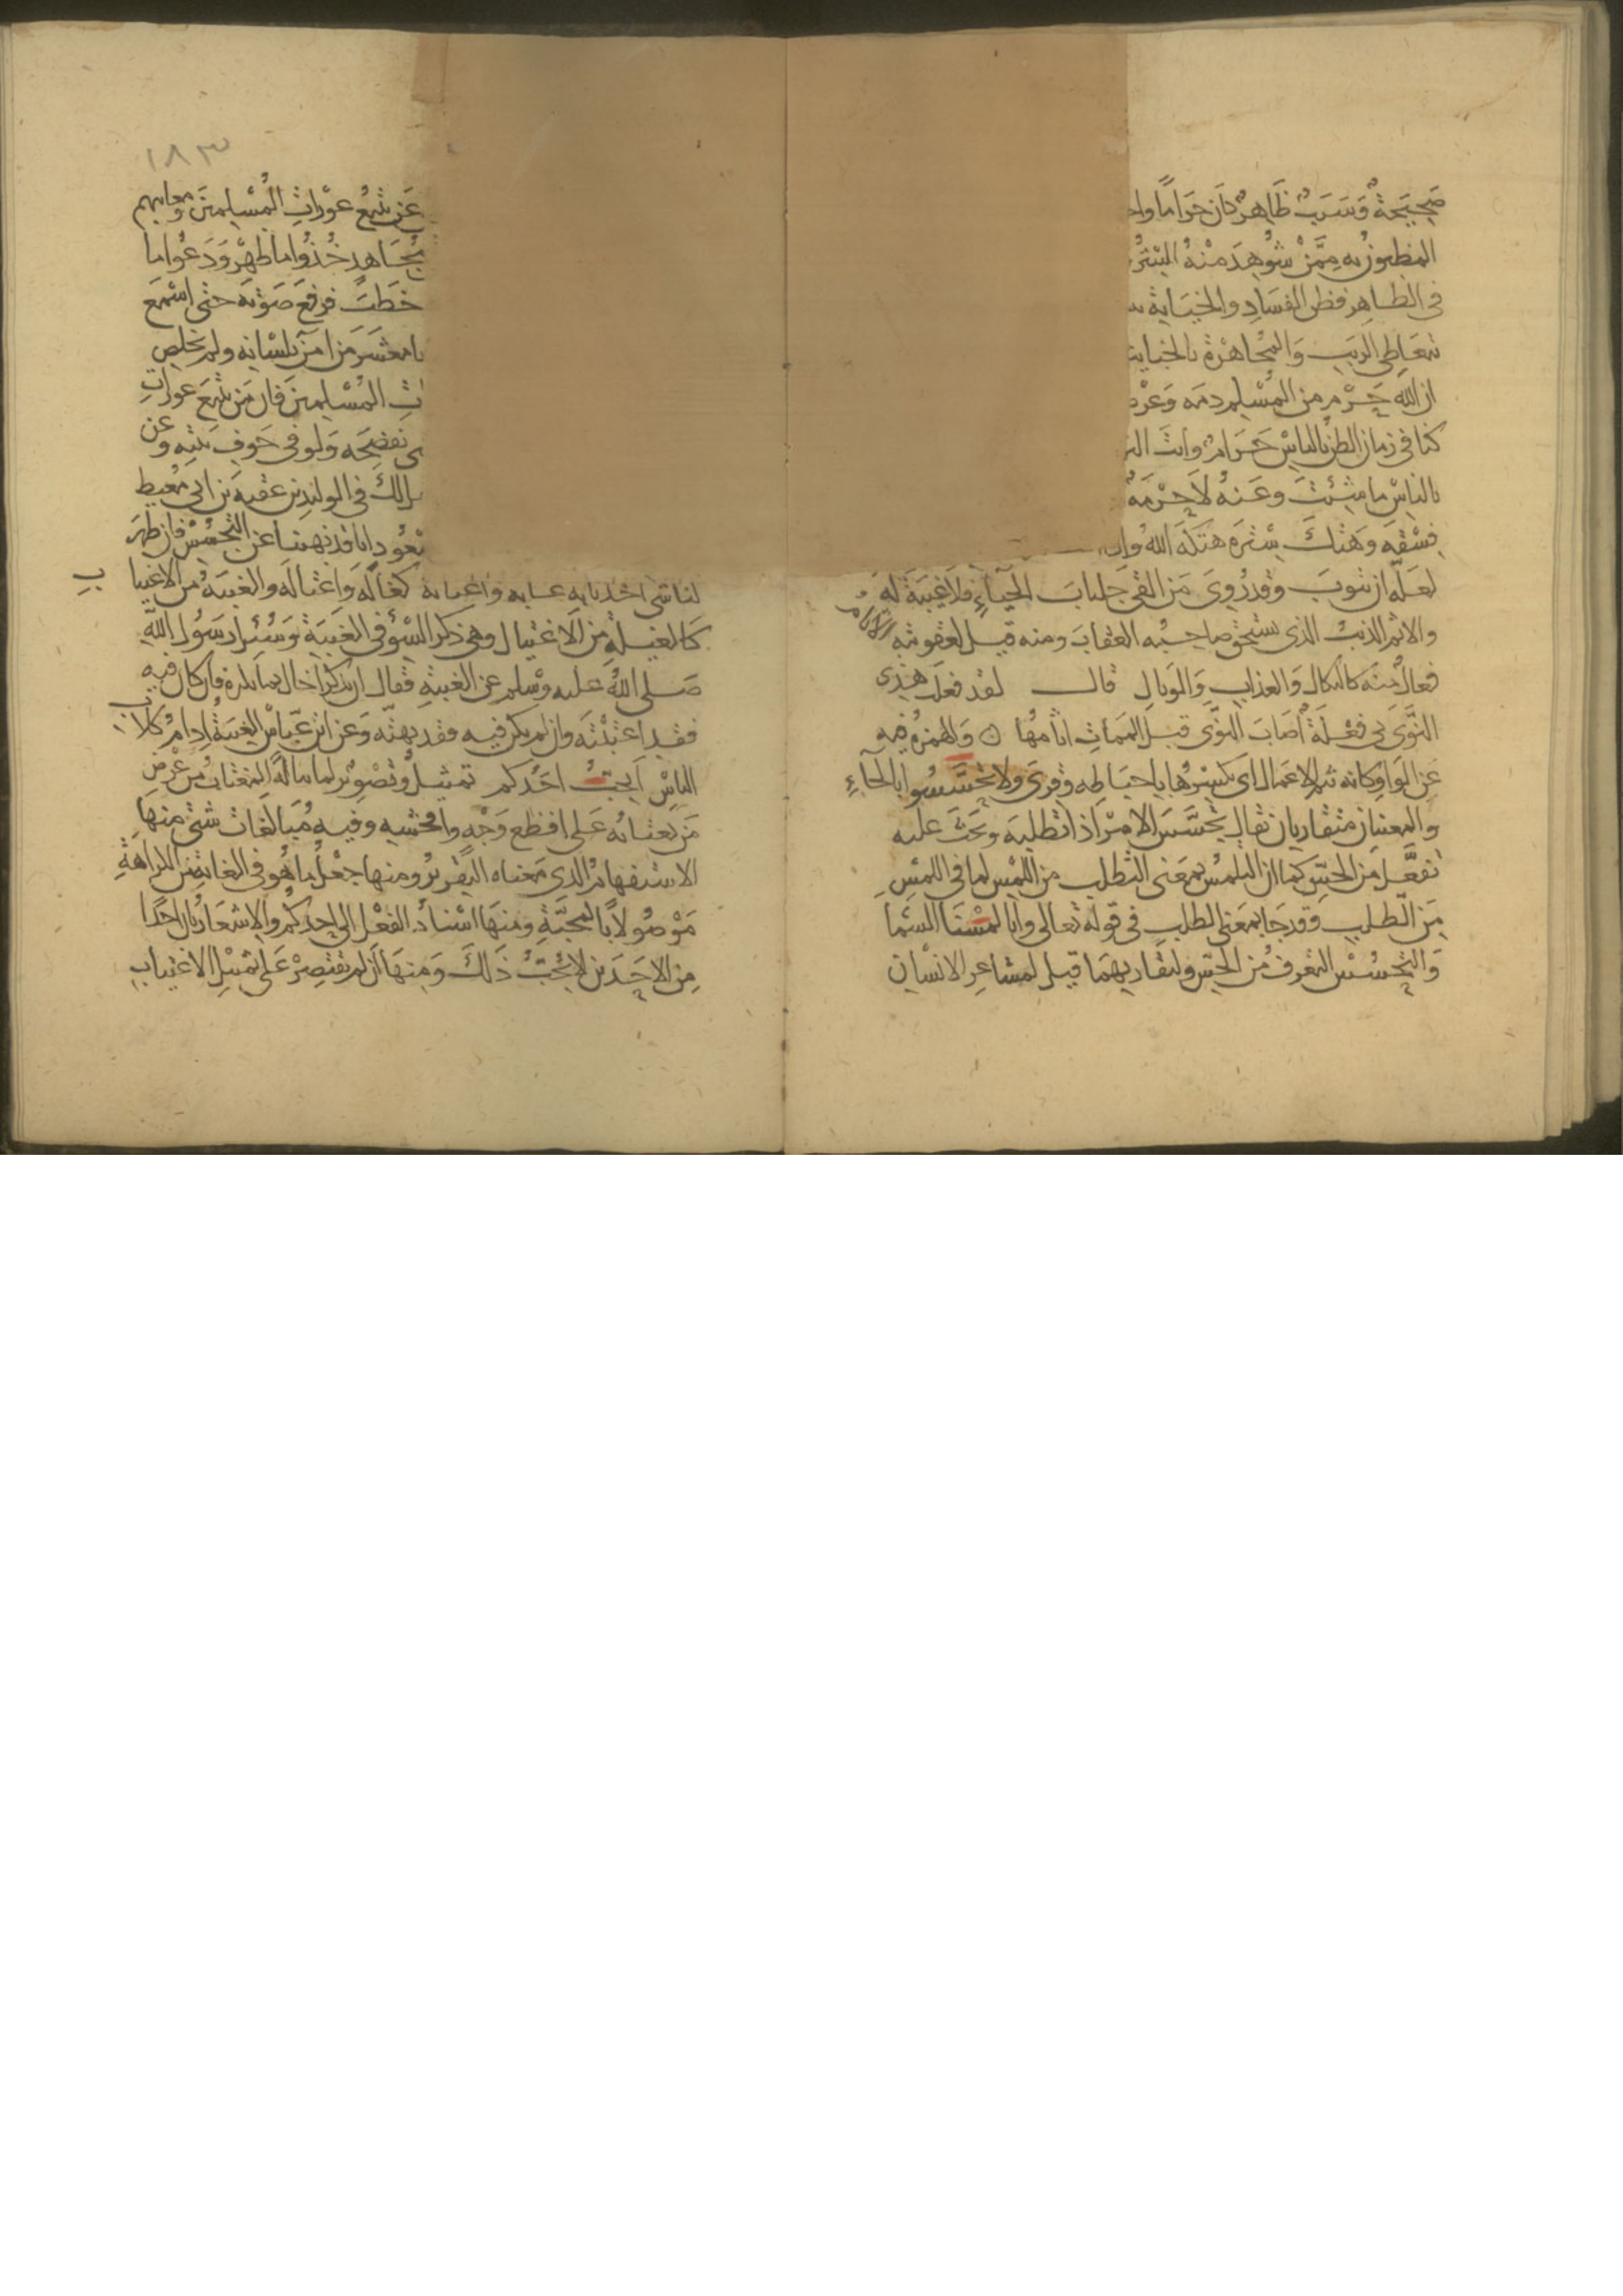 صحيحة وسبب ظاهر كان حراما واجـ
المظنون به ممن شوهد منه الستر
في الظاهر فظن الفساد والخيانة به
بتعاطي الريب والمجاهرة بالخبايث
ان الله حرم من المسلم دمه وعرضـ
كنا في زمان الظن بالناس حرام وانت اليـ
بالناس ما شئت وعنه لا حرمة
فسقه وهتك ستره هتكه الله واذ
لعله ان يتوب وقد روي من القى جلباب الحياء فلا غيبة له
والاثم الذنب الذي يستحق صاحبه العقاب ومنه قيل لعقوبته الاثام
فعال منه كالنكال والعذاب والوبال قال لقد فعلت هذي
النوى بي فعلة اصاب النوى قبل الممات اثامها ○ والهمزة فيه
عن الواو كانه يثم الاعمال اي يكسرها باحباطه وقرئ ولا تحسسوا بالحاء
والمعنيان متقاربان يقال تجسس الامر اذا تطلبه وبحث عليه
تفعل من الجس كما ان التلمس بمعنى التطلب من اللمس لما في اللمس
من الطلب وقد جا بمعنى الطلب في قوله تعالى وانا لمسنا السما
والتحسس التعرف من الحس ولتقاربهما قيل لمشاعر الانسان
١٨٣
عن تتبع عورات المسلمين ومعايبهم
مجاهد خذوا ما ظهر ودعوا ما
خطب فرفع صوته حتى اسمع
يا معشر من امن بلسانه ولم يخلص
ات المسلمين فان من تتبع عورات
ى يفضحه ولو في جوف بيته وعن
هل لك في الوليد بن عقبة بن ابي معيط
مسعود انا قد نهينا عن التجسس فان ظهر
لنا شي اخذنا به غـابه واغتابه كغاله واغتاله والغيبة من الاغتياب
كالغيلة من الاغتيال وهي ذكر السوء في الغيبة وسئل رسول الله
صلى الله عليه وسلم عن الغيبة فقال ان تذكر اخاك بما يكره فان كان فيه
فقد اغتبته وان لم يكن فيه فقد بهته وعن ابن عباس الغيبة ادام كلاب
الناس ايحب احدكم تمثيل وتصوير لما يناله المغتاب من عرض
من يغتابه على افظع وجه وافحشه وفيه مبالغات شتى منها
الاستفهام الذي معناه التقرير ومنها جعل ما هو في الغاية من الكراهة
موصولا بالمحبة ومنها اسناد الفعل الى احدكم والاشعار بان احدا
من الاحدين لا يحب ذلك ومنها ان لم يقتصر على تمثيل الاغتياب